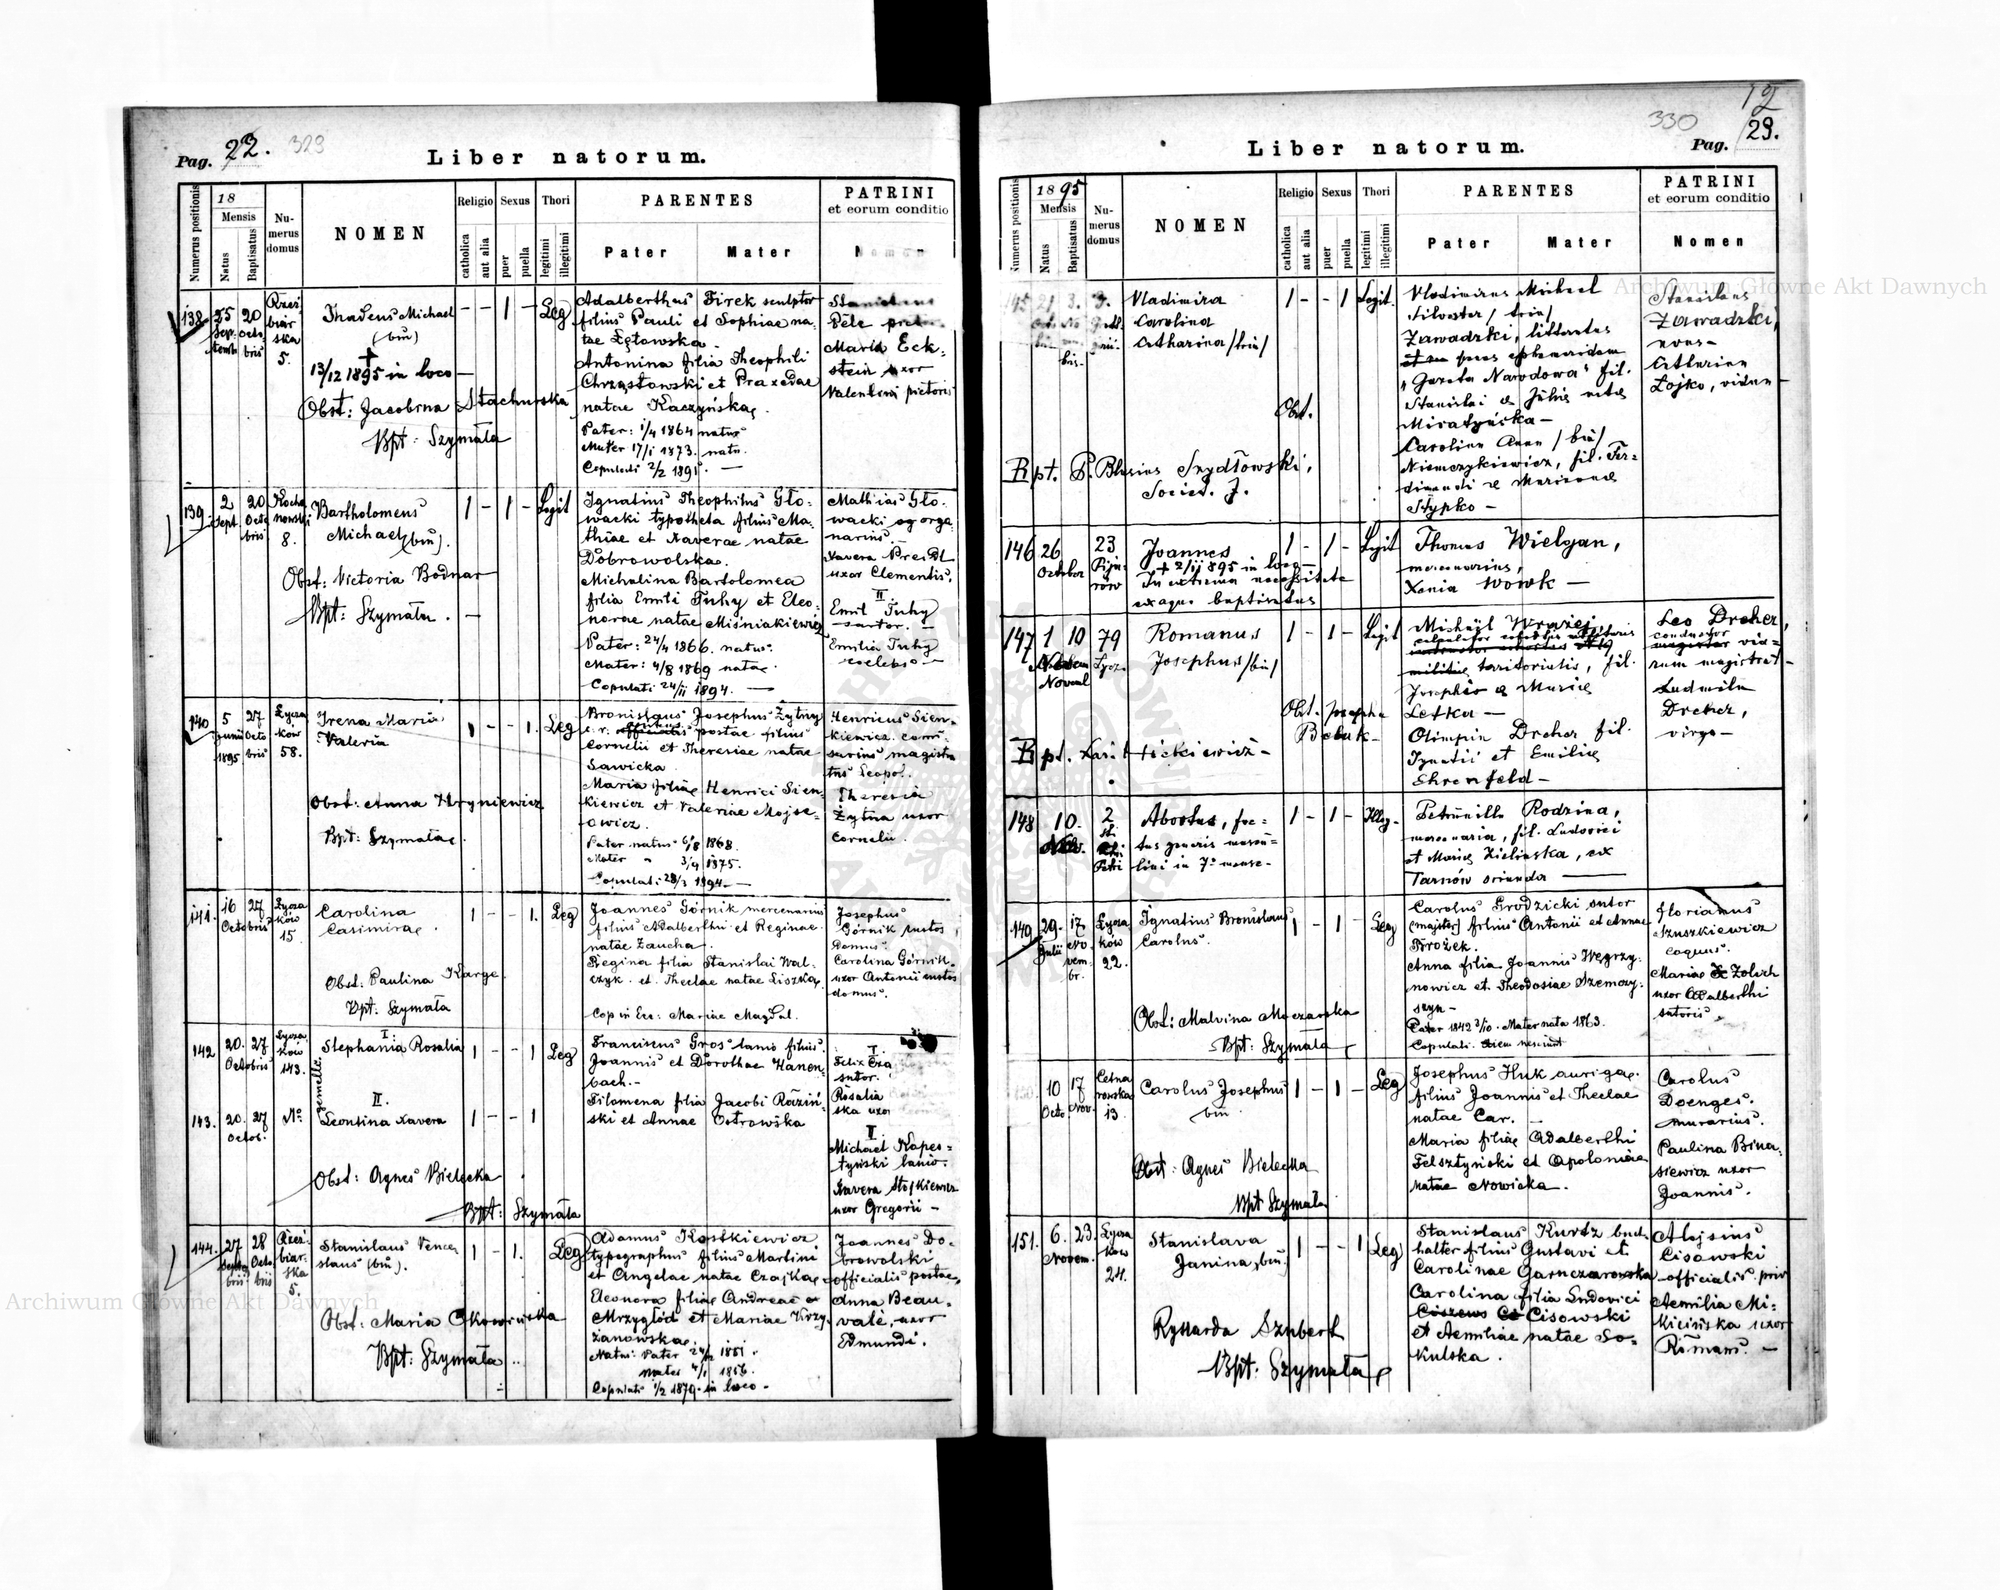 Pag. 22. 323
Liber natorum.
Numerus positionis
18
Mensis
Natus
Baptisatus
Numerus domus
NOMEN
Religio
catholica
aut alia
Sexus
puer
puella
Thori
legitimi
illegitimi
PARENTES
Pater
Mater
PATRINI
et eorum conditio
Nomen
138. 25 Sept. 20 Octobris Rzeźbiarska 5.
Thadeus Michael
(bin)
13/12 1895 in loco
Obst: Jacobina Stachurska
Bpt: Szymała
1 - Leg
Adalberthus Firek sculptor
filius Pauli et Sophiae na-
tae Łętowska -
Antonina filia Theophili
Chrząstowski et Praxedae
natae Kaczyńska.
Pater: 1/4 1864 natus
Mater 17/1 1873. nata.
Copulati 2/2 1891. —
Stanislaus
Maria Eck-
stein uxor
Valentini pictoris
139. 2 Sept. 20 Octobris Kochanowski 8.
Bartholomeus
Michael (bin).
Obst: Victoria Bodnar
Bpt: Szymała. —
1 - 1 - Legit
Ignatius Theophilus Gło-
wacki typotheta filius Ma-
thiae et Xaverae natae
Dobrowolska.
Michalina Bartolomea
filia Emili Tuhy et Eleo-
norae natae Miśniakiewicz
Pater: 24/4 1866. natus.
Mater: 4/8 1869 nata.
Copulati 24/11 1894. —
Mathias Gło-
wacki orga-
narius.
Xavera Preidl
uxor Clementis,
II
Emil Tuhy
sartor. —
Emilia Tuhy
coelebs —
140 5 Junii 1895 27 Octobris Łyczaków 58.
Irena Maria
Valeria
Obst: Anna Hryniewicz
Bpt: Szymała.
1 - - 1. Leg
Bronislaus Josephus Żytny
c. r. officialis postae filius
Cornelii et Theresiae natae
Sawicka.
Maria filia Henrici Sien-
kiewicz et Valeriae Mojse-
owicz.
Pater natus 6/8 1868.
Mater " 3/9 1875.
Copulati 28/3 1894. —
Henricus Sien-
kiewicz comi-
sarius magistra
tus Leopol.
Theresia
Żytna uxor
Cornelii.
141. 16 Octobris 27 Łyczaków 15
Carolina
Casimira.
Obst: Paulina Karge.
Bpt: Szymała
1 - - 1. Leg
Joannes Górnik mercenarius
filius Adalberthi et Reginae
natae Zaucha.
Regina filia Stanislai Wal-
czyk et Theclae natae Liszka,
Cop in Ecc: Mariae Magdal.
Josephus
Górnik custos
Domus.
Carolina Górnik
uxor Antonii custos
domus.
142 20. Octobris 27 Łyczaków 143.
gemelle
I.
Stephania Rosalia
1 - - 1 Leg
Franciscus Gros lanio filius
Joannis et Dorothae Hanen-
bach. -
Filomena filia Jacobi Roziń-
ski et Annae Ostrowska
I.
Felix
sutor.
Rosalia
ska uxor
143. 20. Octob. 27 No
II.
Leontina Xavera
1 - - 1
II.
Michael Kopes-
tyński lanio.
Xavera Stojkiewicz
uxor Gregorii -
Obst: Agnes Bielecka
Bpt: Szymała
144. 27 28 Octobris Rzeźbiarska 5.
Stanislaus Vences
slaus (bin).
Obst: Maria Okowińska
Bpt: Szymała
1 - 1. Leg
Adamus Kostkiewicz
typographus filius Martini
et Angelae natae Czajka
Eleonora filia Andreae
Mrzygłód et Mariae Krzy-
żanowska.
Natus: Pater 24/12 1851.
mater 4/1 1856.
Copulati 1/2 1879. in loco -
Joannes Do-
browolski
officialis postae,
Anna Beau-
vale, uxor
Edmundi.
330 12
Pag. 23.
Liber natorum.
Numerus positionis
1895
Mensis
Natus
Baptisatus
Numerus domus
NOMEN
Religio
catholica
aut alia
Sexus
puer
puella
Thori
legitimi
illegitimi
PARENTES
Pater
Mater
PATRINI
et eorum conditio
Nomen
145 21 3. 9.
Vladimira
Carolina
Catharina /trin/
Obst.
Bpt. P. Blasius Szydłowski,
Societ. J.
1 - - 1 Legit.
Vladimirus Michael
Silvester / trin/
Zawadzki, litteratus
penes ephemeridem
"Gazeta Narodowa" fil.
Stanislai & Julie nata
Miratyńska —
Carolina Anna /bin/
Niemczykiewicz, fil. Fer-
dinandi & Marianna
Stypko —
Stanislaus
Zawadzki,
avus -
Catharina
Łojko, vidua -
146 26 October 23 Pijarów
Joannes
+ 2/11 895 in loco —
In extrema necessitate
ex aqua baptisatus
1 - 1 - Legit
Thomas Wielgan,
mercenarius,
Xenia Wowk —
147 1 10 Novemb 79 Łycz.
Romanus
Josephus /bin/
Obst. Josepha
Bobak -
Bpt. Xav. Hickiewicz -
1 - 1 - Legit
Michael Wrażej,
territorialis, fil.
Josephi & Marie
Letka —
Olimpia Dreher fil.
Ignatii et Emilie
Ehrenfeld —
Leo Dreher,
conductor via-
rum magistrat -
Ludmila
Dreher,
virgo -
148 10. 2
Abortus, foe-
tus generis mascu-
lini in 7° mense -
1 - 1 - Illeg.
Petronilla Rodzina,
mercenaria, fil. Ludovici
et Marie Zielinska, ex
Tarnów oriunda —
149 29. Julii 17 Novembr. Łyczaków 22.
Ignatius Bronislaus
Carolus.
Obst: Malvina Moczarska
Bpt: Szymała
1 - 1 - Leg
Carolus Grodzicki sutor
(majster) filius Antonii et Annae
Mrożek.
Anna filia Joannis Węgrzy-
nowicz et Theodosiae Szemczy-
szyn -
Pater 1842 3/10. Mater nata 1863.
Copulati. Diem nesciunt
Florianus
Szuszkiewicz
coquus.
Maria Zolich
uxor Adalberthi
sutoris
10 Octo 17 Nov. Cetnarowska 13.
Carolus Josephus
bin
Obst: Agnes Bielecka
Bpt Szymała
1 - 1 - Leg
Josephus Huk auriga.
filius Joannis et Theclae
natae Car. —
Maria filia Adalberthi
Felsztyński et Apoloniae
natae Nowicka.
Carolus
Doenges.
murarius.
Paulina Bina-
siewicz uxor
Joannis.
151. 6. 23. Novem. Łyczaków 24.
Stanislava
Janina (bin)
Ryssarda Szubert
Bpt: Szymała
1 - - 1 Leg
Stanislaus Kurdz bud-
halter filius Gustavi et
Carolinae Garnczarowska
Carolina filia Ludovici
Cisowski
et Aemiliae natae So-
kulska.
Alojsius
Cisowski
officialis priv
Aemilia Mi-
Micińska uxor
Romani. —
Archiwum Główne Akt Dawnych
Archiwum Główne Akt Dawnych